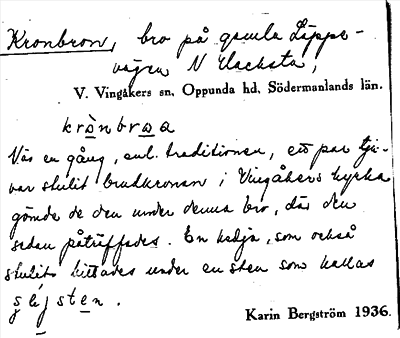 Kronbron, bro på gamla Läppe-
vägen N Klacksta,
V. Vingåkers sn, Oppunda hd, Södermanlands län.
krònbrωa
När en gång, enl. traditionen, ett par tju-
var stulit brudkronan i Vingåkers kyrka
gömde de den under denna bro, där den
sedan påträffades. En kedja, som också
stulits hittades under en sten som kallas
Karin Bergström 1936.